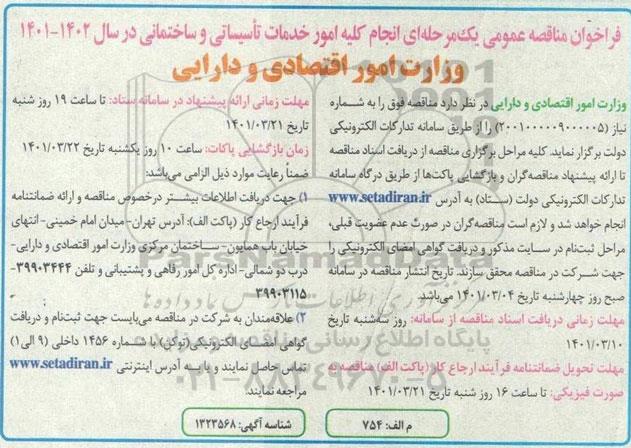 فراخوان مناقصه عمومی یک‌مرحله‌ای انجام کلیه امور خدمات تأسیساتی و ساختمانی در سال ۱۴۰۲-۱۴۰۱
وزارت امور اقتصادی و دارایی
وزارت امور اقتصادی و دارایی در نظر دارد مناقصه فوق را به شماره
نیاز (۲۰۰۱۰۰۰۰۰۹۰۰۰۰۰۵) را از طریق سامانه تدارکات الکترونیکی
دولت برگزار نماید. کلیه مراحل برگزاری مناقصه از دریافت اسناد مناقصه
تا ارائه پیشنهاد مناقصه‌گران و بازگشایی پاکت‌ها از طریق درگاه سامانه
تدارکات الکترونیکی دولت (ستاد) به آدرس www.setadiran.ir
انجام خواهد شد و لازم است مناقصه‌گران در صورت عدم عضویت قبلی،
مراحل ثبت‌نام در سایت مذکور و دریافت گواهی امضای الکترونیکی را
جهت شرکت در مناقصه محقق سازند. تاریخ انتشار مناقصه در سامانه
صبح روز چهارشنبه تاریخ ۱۴۰۱/۰۳/۰۴ می‌باشد.
مهلت زمانی دریافت اسناد مناقصه از سامانه: روز سه‌شنبه تاریخ
۱۴۰۱/۰۳/۱۰
مهلت تحویل ضمانتنامه فرآیند ارجاع کار (پاکت الف) مناقصه به
صورت فیزیکی: تا ساعت ۱۶ روز شنبه تاریخ ۱۴۰۱/۰۳/۲۱
مهلت زمانی ارائه پیشنهاد در سامانه ستاد: تا ساعت ۱۹ روز شنبه
تاریخ ۱۴۰۱/۰۳/۲۱
زمان بازگشایی پاکات: ساعت ۱۰ روز یکشنبه تاریخ ۱۴۰۱/۰۳/۲۲
ضمناً رعایت موارد ذیل الزامی می‌باشد:
۱) جهت دریافت اطلاعات بیشتر درخصوص مناقصه و ارائه ضمانتنامه
فرآیند ارجاع کار (پاکت الف): آدرس تهران- میدان امام خمینی- انتهای
خیابان باب همایون- ساختمان مرکزی وزارت امور اقتصادی و دارایی-
درب دو شمالی- اداره کل امور رفاهی و پشتیبانی و تلفن ۳۹۹۰۳۴۴۴-
۳۹۹۰۳۱۱۵
۲) علاقه‌مندان به شرکت در مناقصه می‌بایست جهت ثبت‌نام و دریافت
گواهی امضای الکترونیکی (توکن) با شماره ۱۴۵۶ داخلی (۹ الی ۱)
تماس حاصل نمایند و یا به آدرس اینترنتی www.setadiran.ir
مراجعه نمایند.
م الف: ۷۵۴
شناسه آگهی: ۱۳۲۳۵۶۸
ParsNamadData
پایگاه اطلاع رسانی
۰۲۱-۸۸۳۴۹۶۷۰-۵